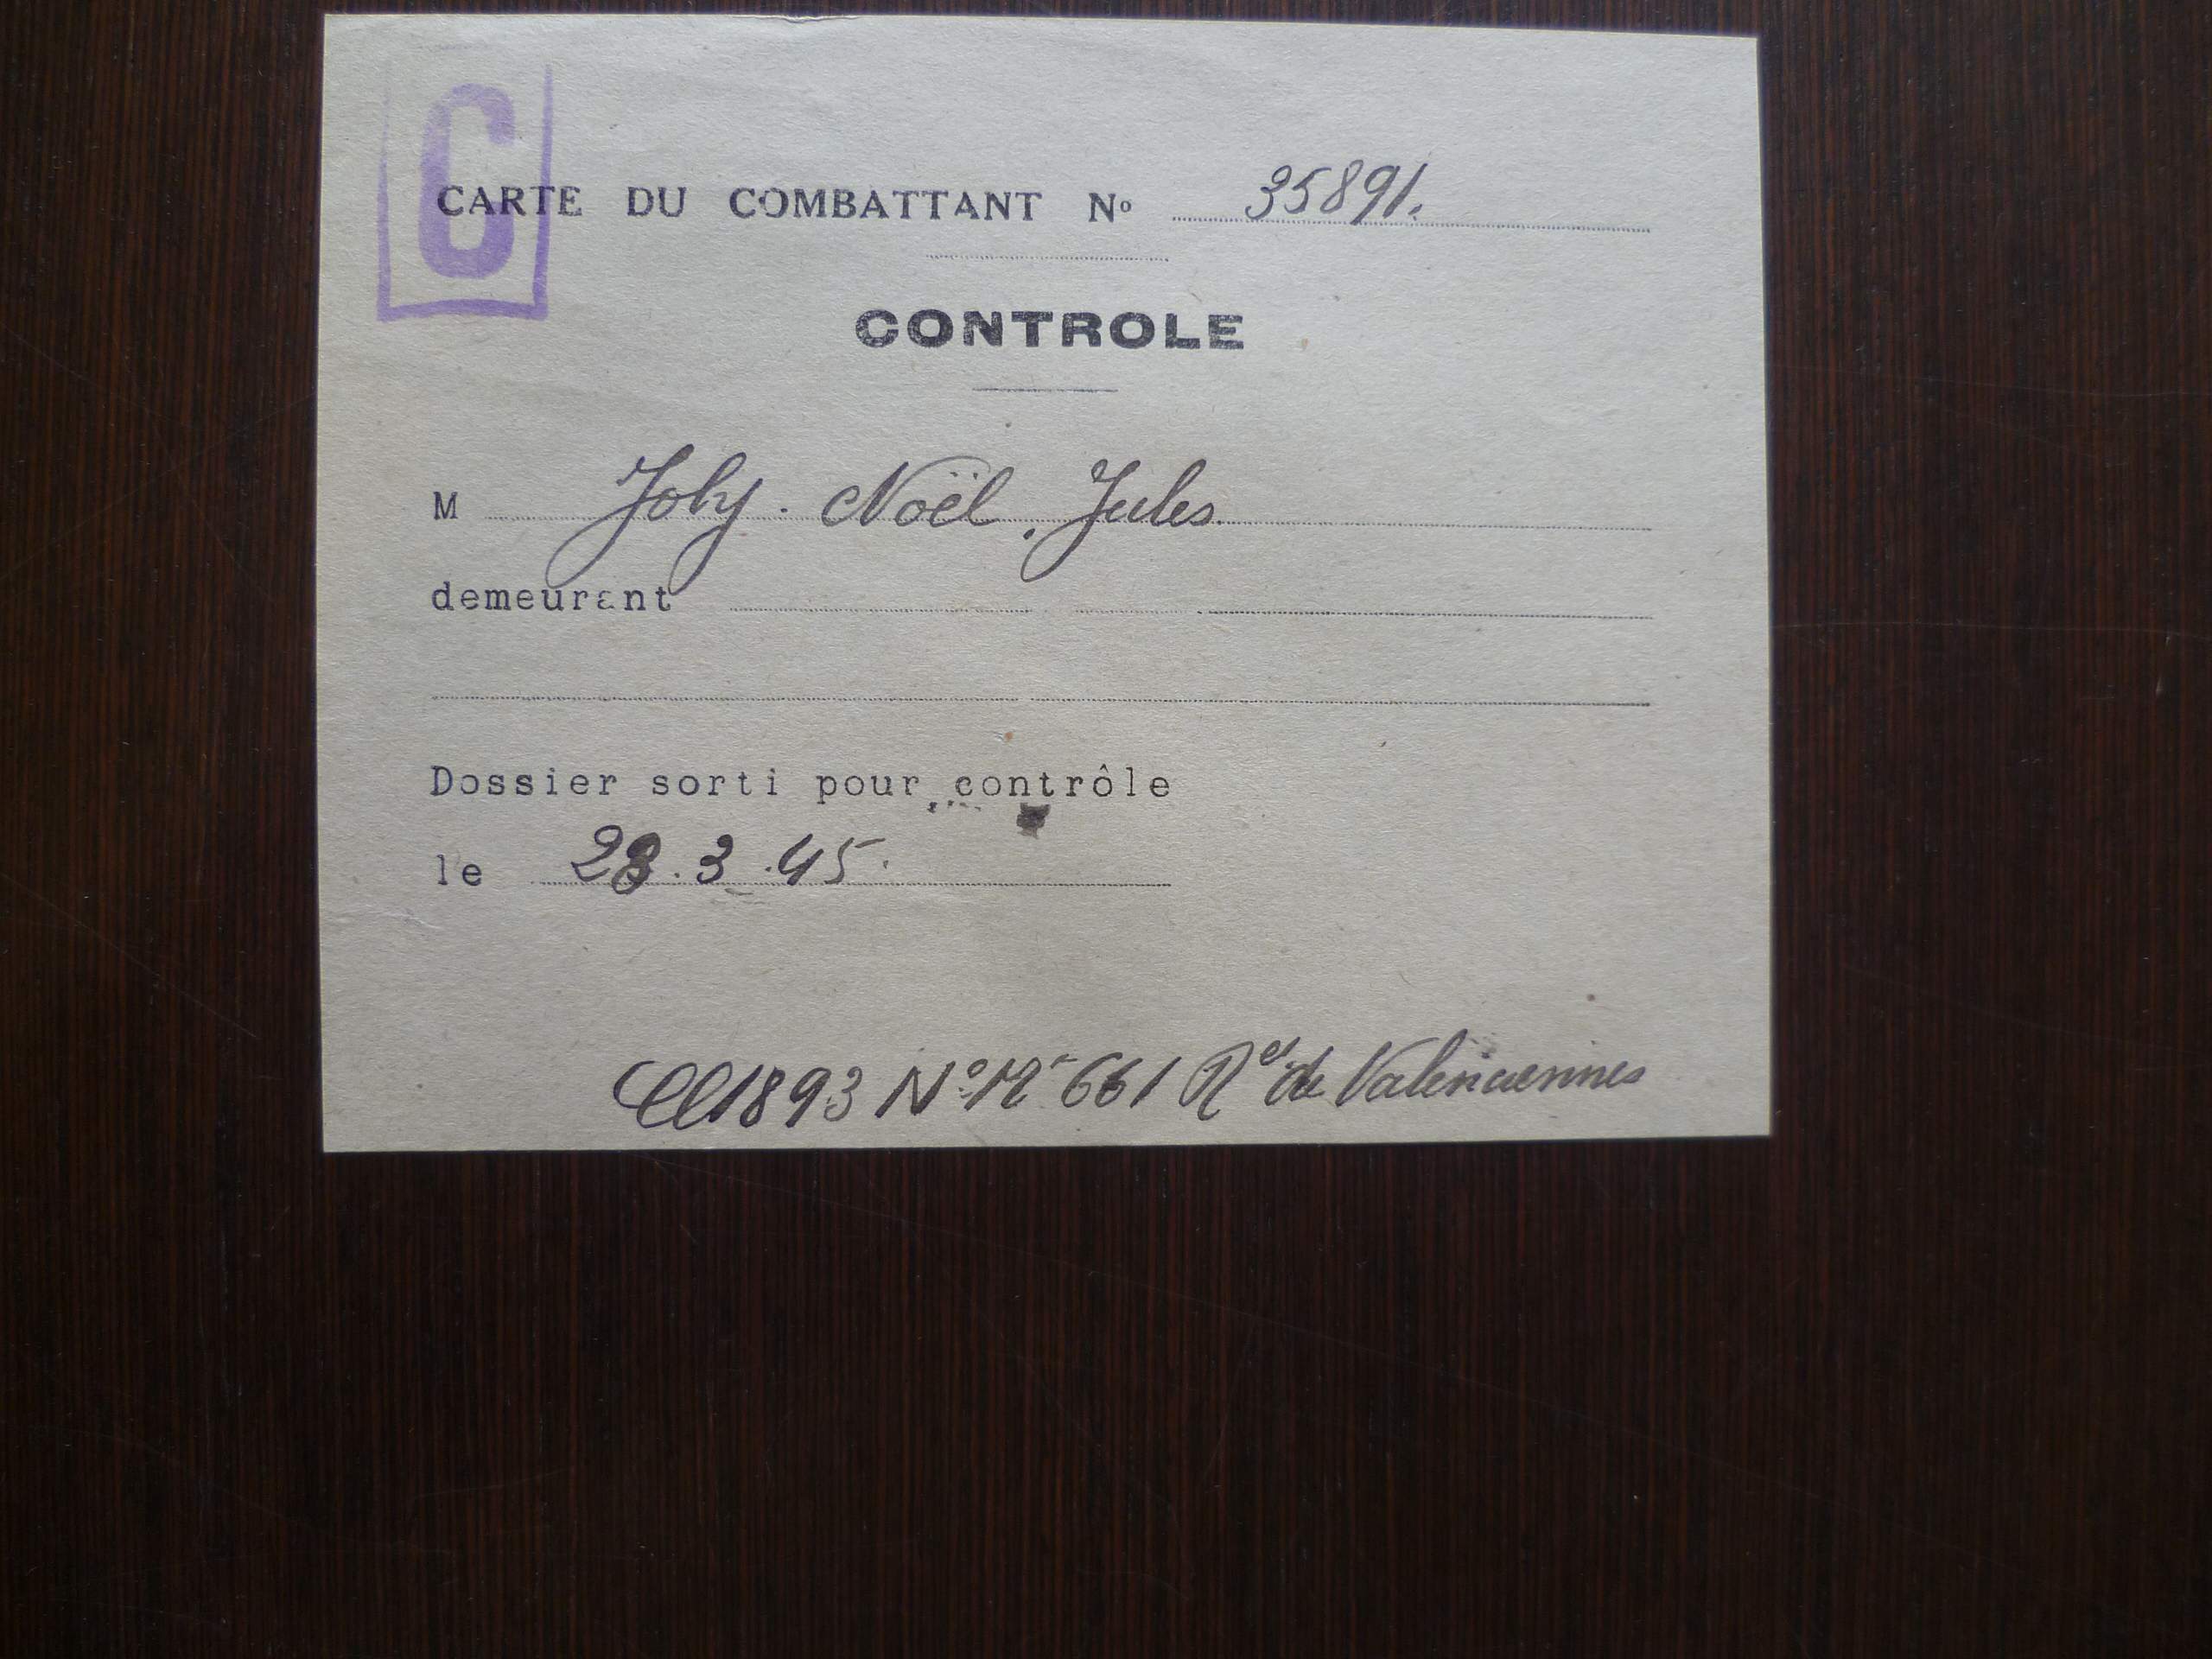 C
CARTE DU COMBATTANT Nº 35891.
CONTROLE
M Joly. Noël. Jules.
demeurant
Dossier sorti pour contrôle
le 28.3.45.
Cl 1893 Nº Mle 661 Rt de Valenciennes